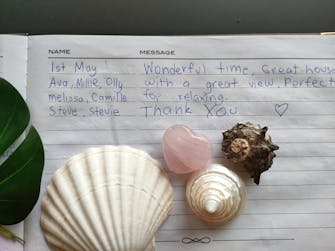 NAME MESSAGE
1st May Wonderful time, Great house
Ava, Millie, Olly with a great view. Perfect
melissa, Camille for relaxing.
Steve, Stevie Thank You ♡